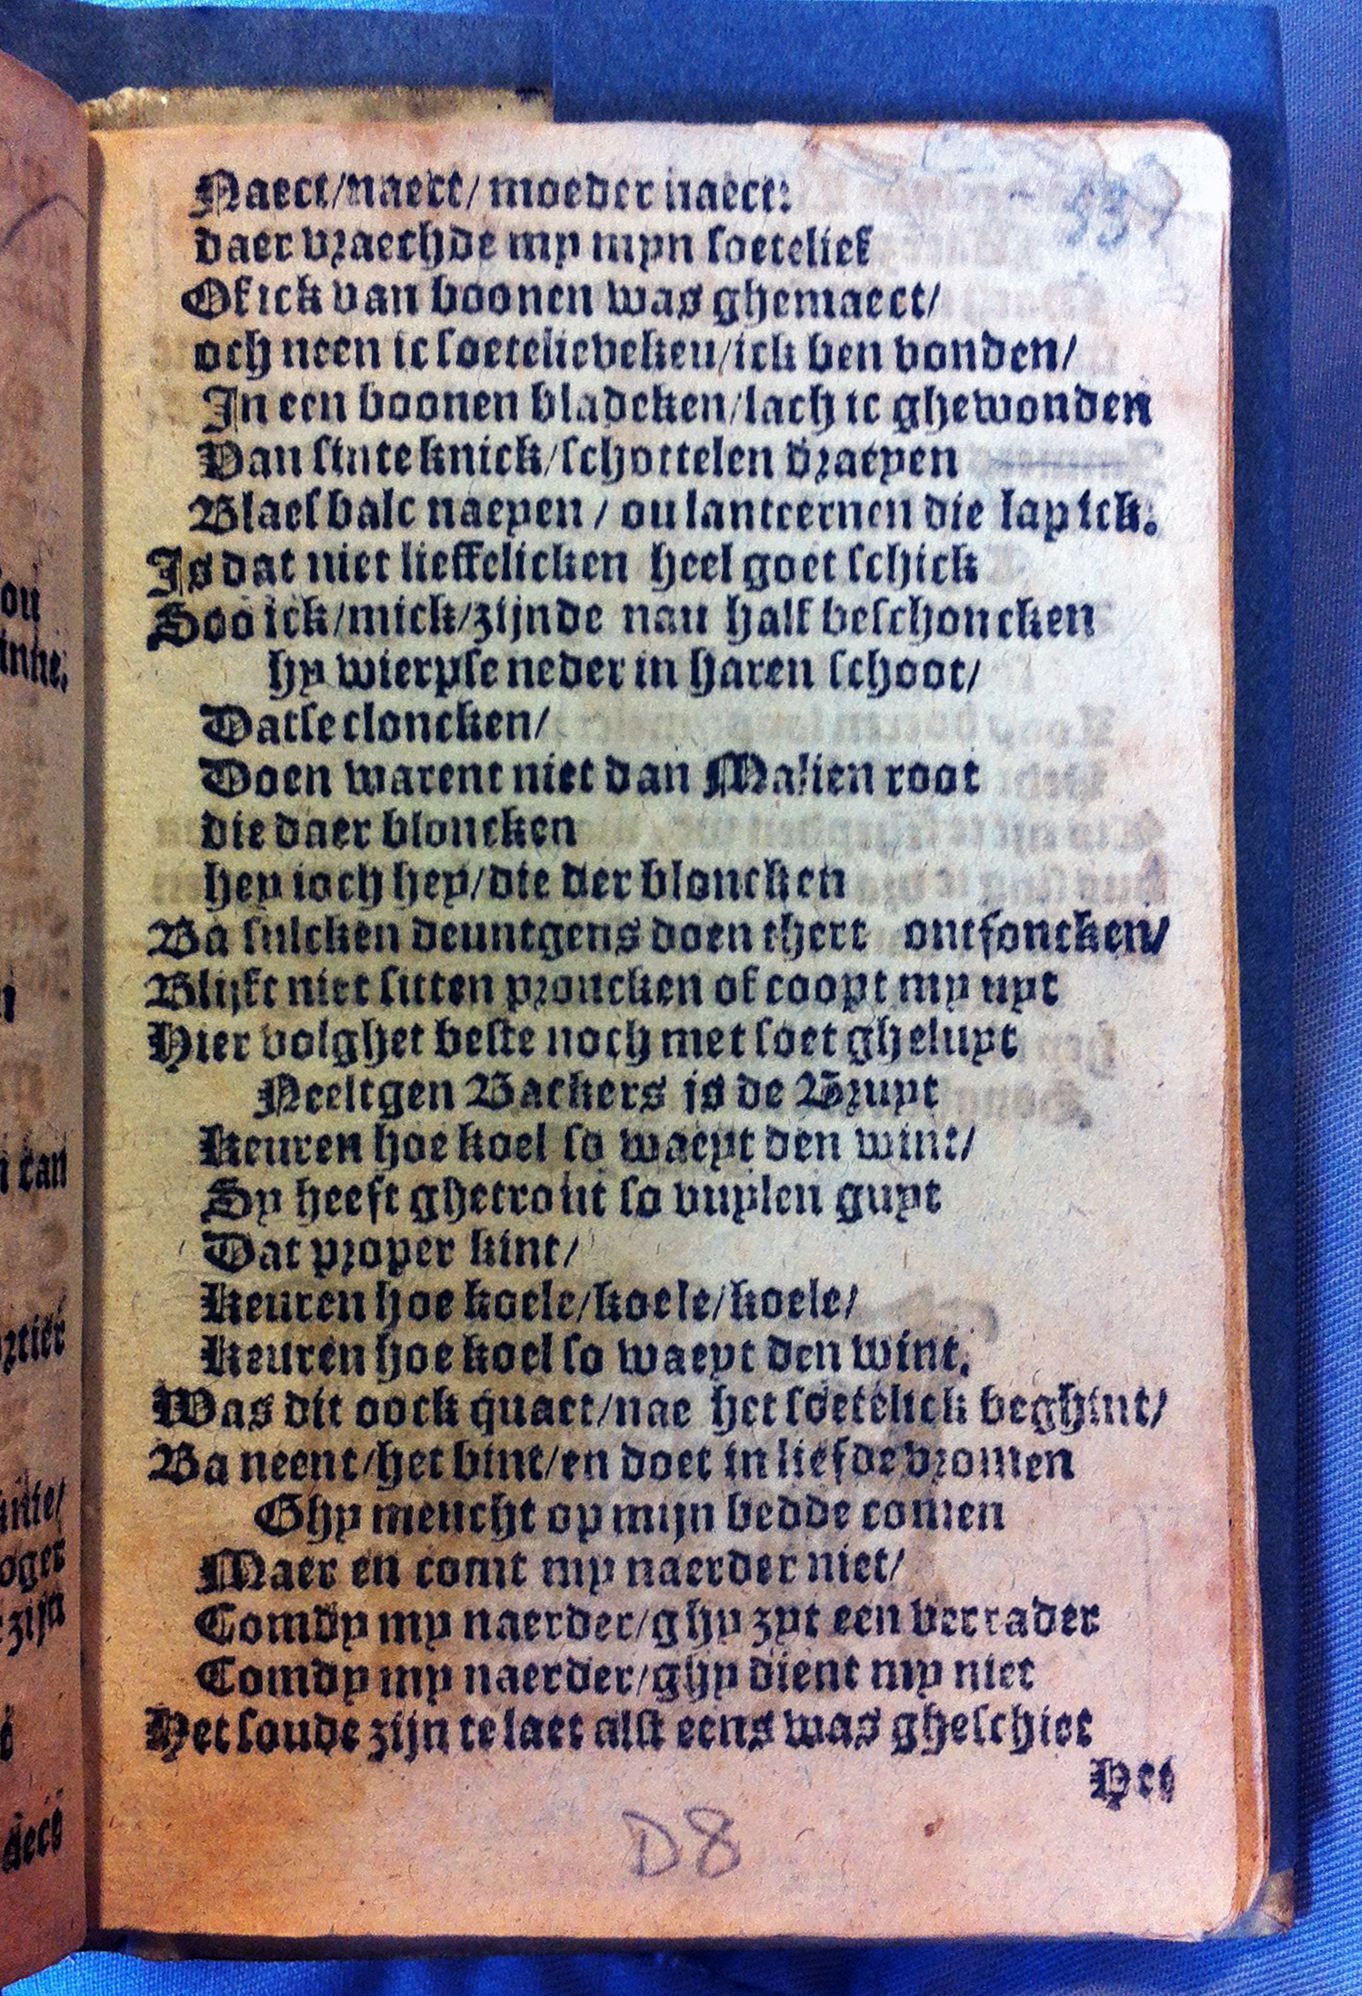 Naect/naect/ moeder naect:
daer vraechde my myn soetelief
Of ick van boonen was ghemaect/
och neen ic soetelieveken/ick ben vonden/
In een boonen bladeken/lach ic ghewonden
Van sinte knick/schottelen draeyen
Blaesbalc naeyen/ ou lanteernen die lap ick.
Is dat niet lieffelicken heel goet schick
Soo ick/mick/zijnde nau half beschoncken
hy wierpse neder in haren schoot/
Datse cloncken/
Doen warent niet dan Malien root
die daer bloncken
hey ioch hey/die der bloncken
Ba sulcken deuntgens doen thert ontfoncken/
Blijft niet sitten proncken of coopt my uyt
Hier volghet beste noch met soet gheluyt
Neeltgen Backers is de Bruyt
Keuren hoe koel so waeyt den wint/
Sy heeft ghetrout so vuylen guyt
Dat proper kint/
Keuren hoe koele/koele/koele/
Keuren hoe koel so waeyt den wint.
Was dit oock quaet/nae het soetelick beghint/
Ba neent/het bint/en doet in liefde vromen
Ghy meucht op mijn bedde comen
Maer en comt my naerder niet/
Comdy my naerder/ghy zyt een verrader
Comdy my naerder/ghy dient my niet
Het soude zijn te laet alst eens was gheschiet
Het
D8